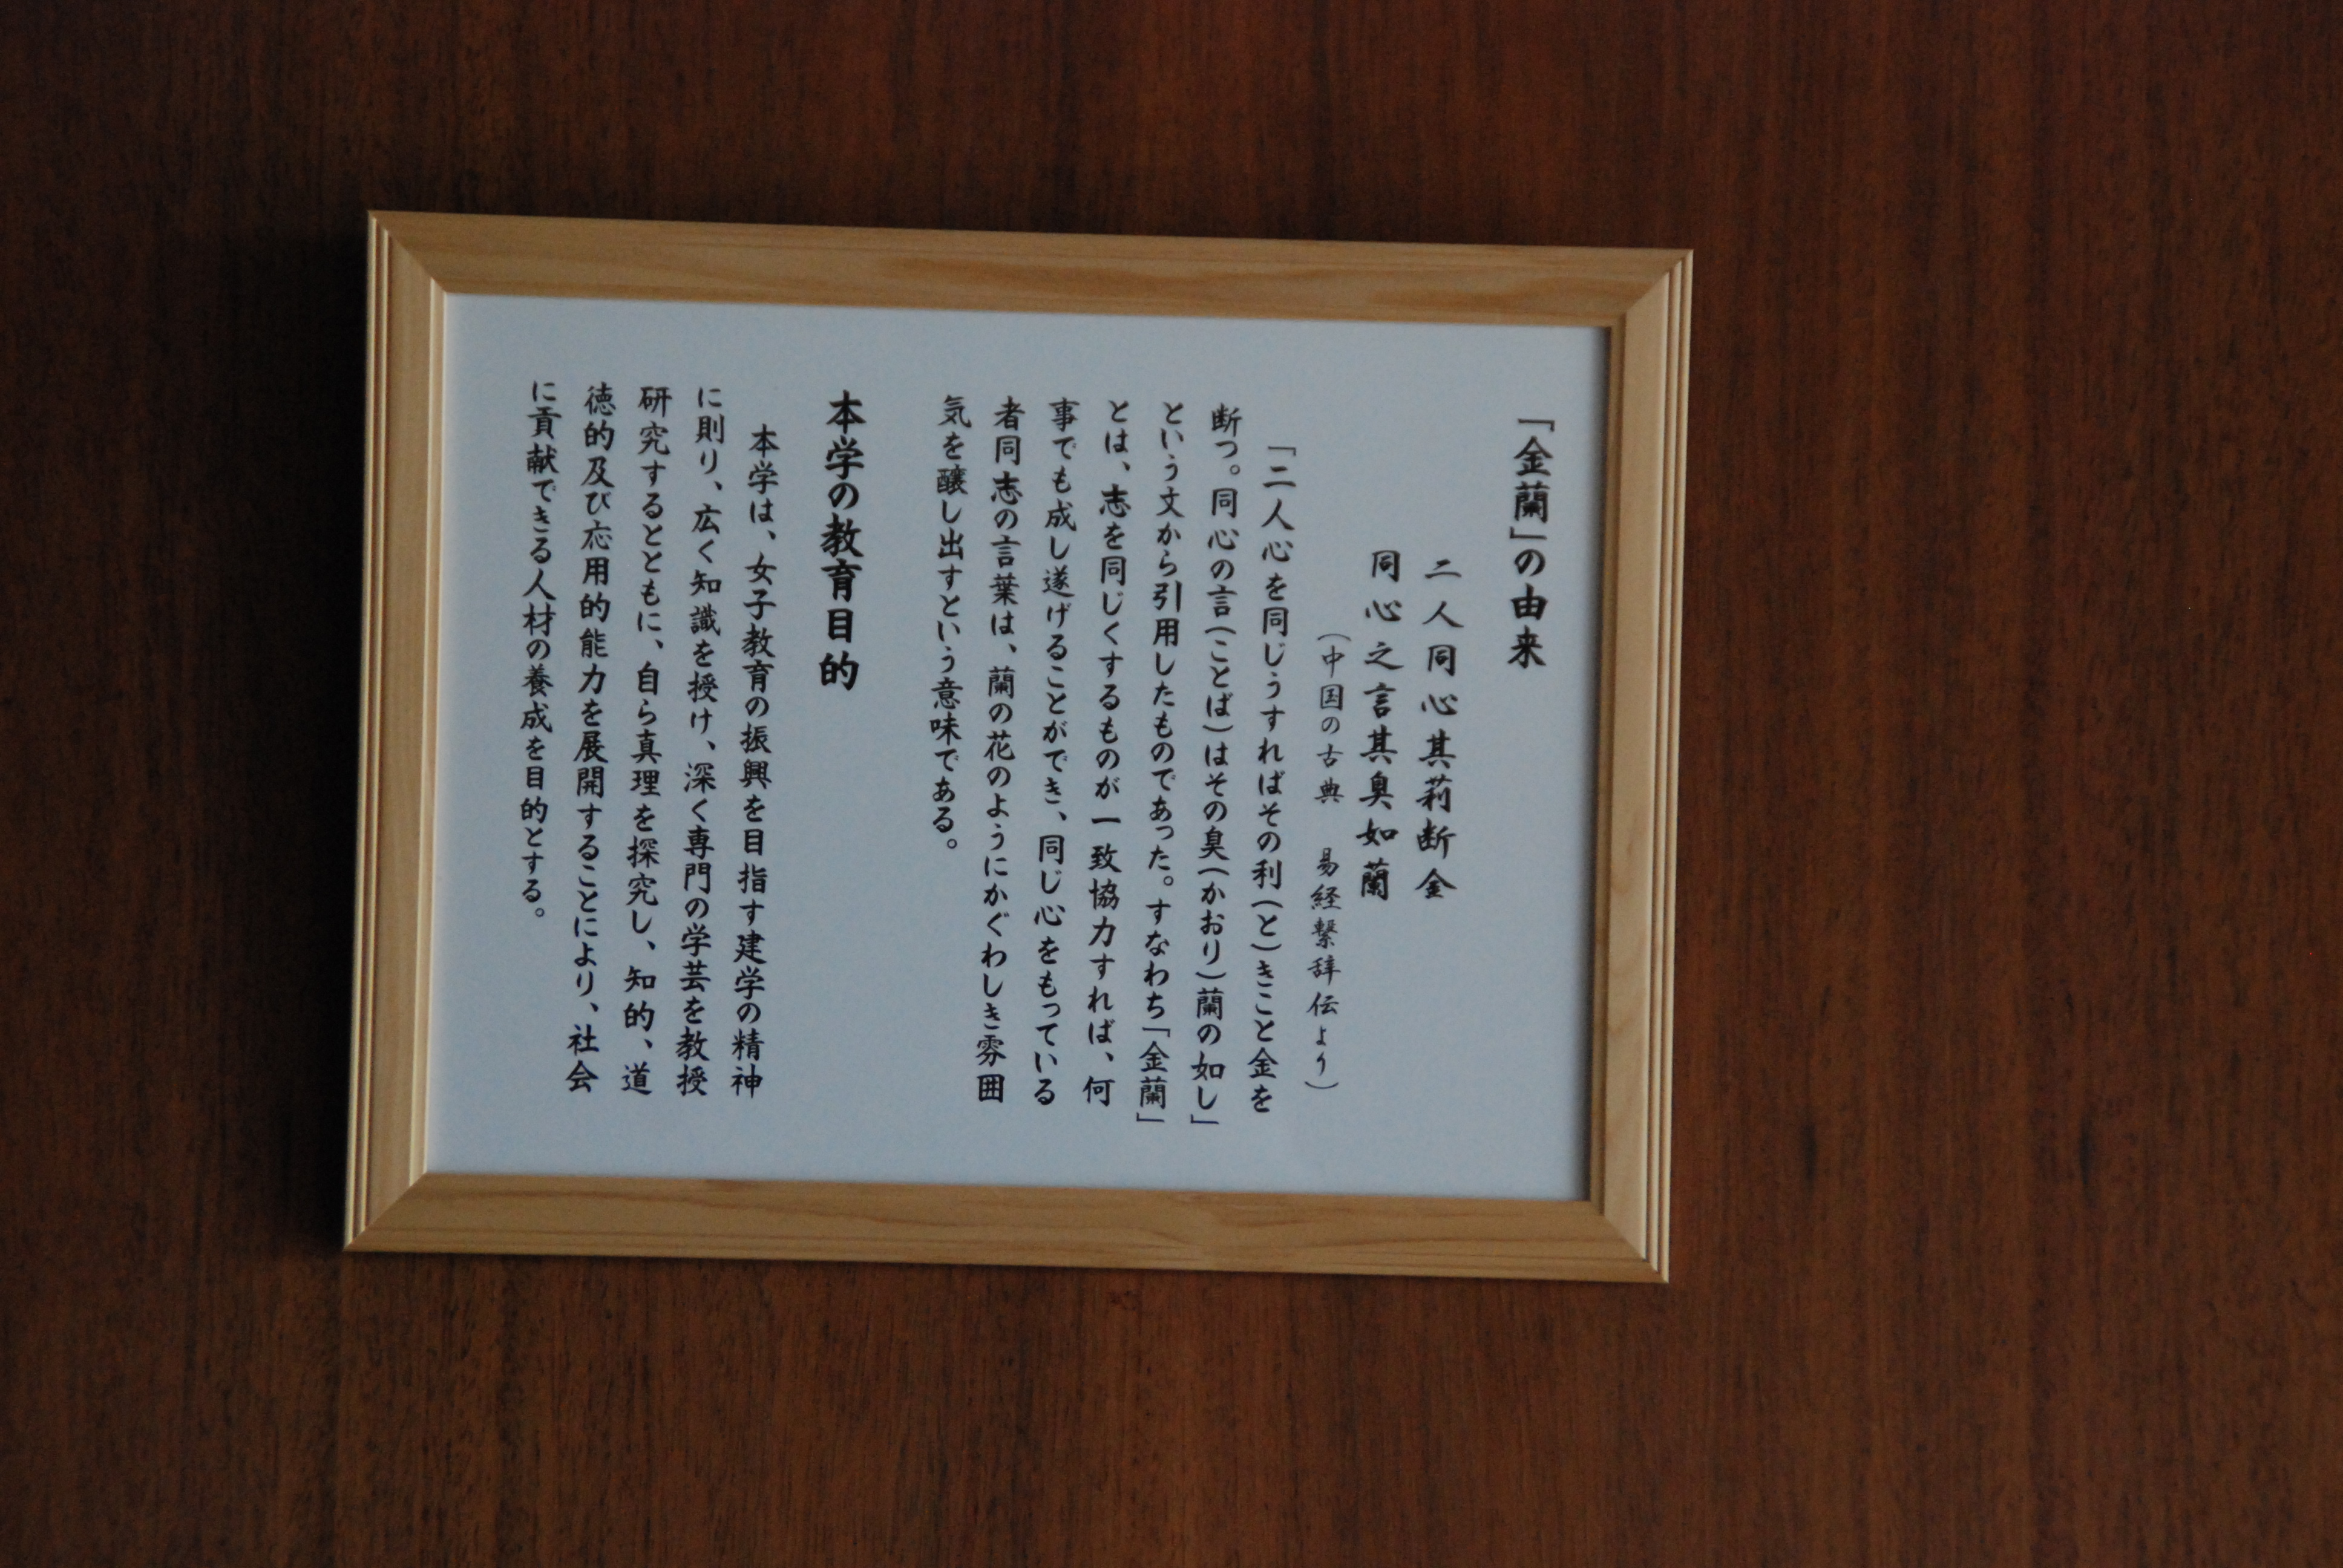 「金蘭」の由来
二人同心其莉断金
同心之言其臭如蘭
(中国の古典 易経繋辞伝より)
「二人心を同じうすればその利(と)きこと金を
断つ。同心の言(ことば)はその臭(かおり)蘭の如し」
という文から引用したものであった。すなわち「金蘭」
とは、志を同じくするものが一致協力すれば、何
事でも成し遂げることができ、同じ心をもっている
者同志の言葉は、蘭の花のようにかぐわしき雰囲
気を醸し出すという意味である。
本学の教育目的
本学は、女子教育の振興を目指す建学の精神
に則り、広く知識を授け、深く専門の学芸を教授
研究するとともに、自ら真理を探究し、知的、道
徳的及び応用的能力を展開することにより、社会
に貢献できる人材の養成を目的とする。